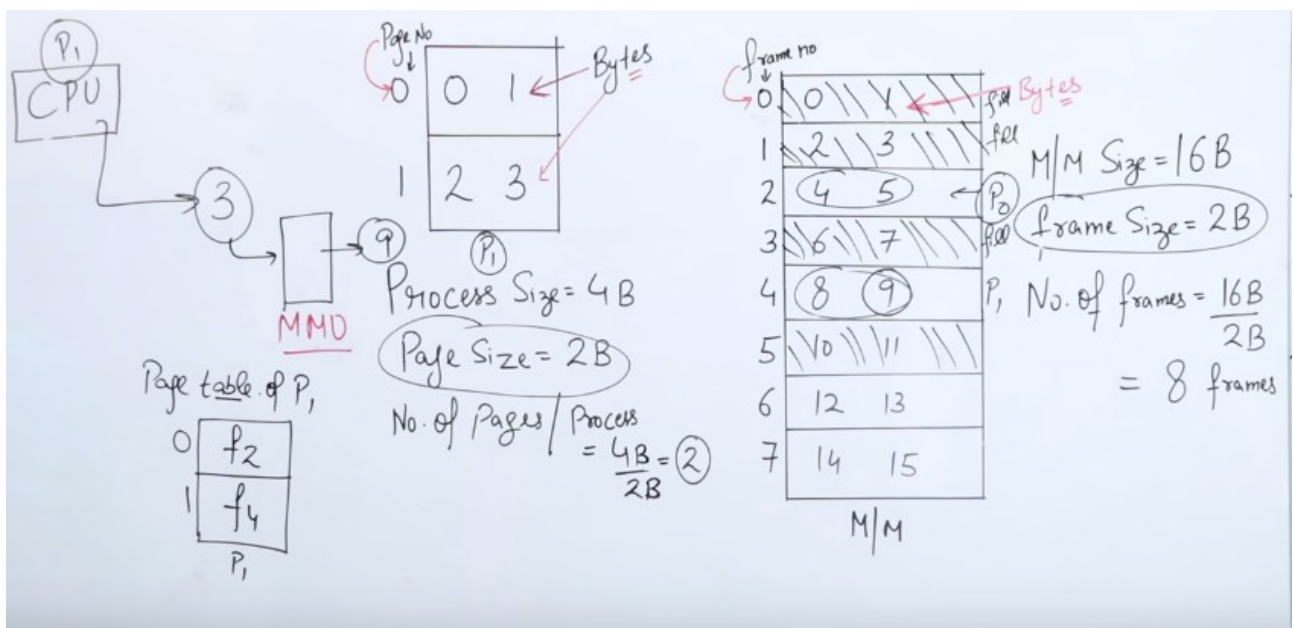 P1
CPU
3
MMU
9
Page table of P1
0 f2
1 f4
P1
Page No
0 0 1
1 2 3
Bytes
P1
Process Size = 4B
Page Size = 2B
No. of Pages / Process
= 4B/2B = 2
frame no
0 0 1 fill
Bytes
1 2 3 fill
2 4 5 P0
3 6 7 fill
4 8 9 P1
5 10 11
6 12 13
7 14 15
M/M
M/M Size = 16B
frame Size = 2B
No. of frames = 16B/2B
= 8 frames